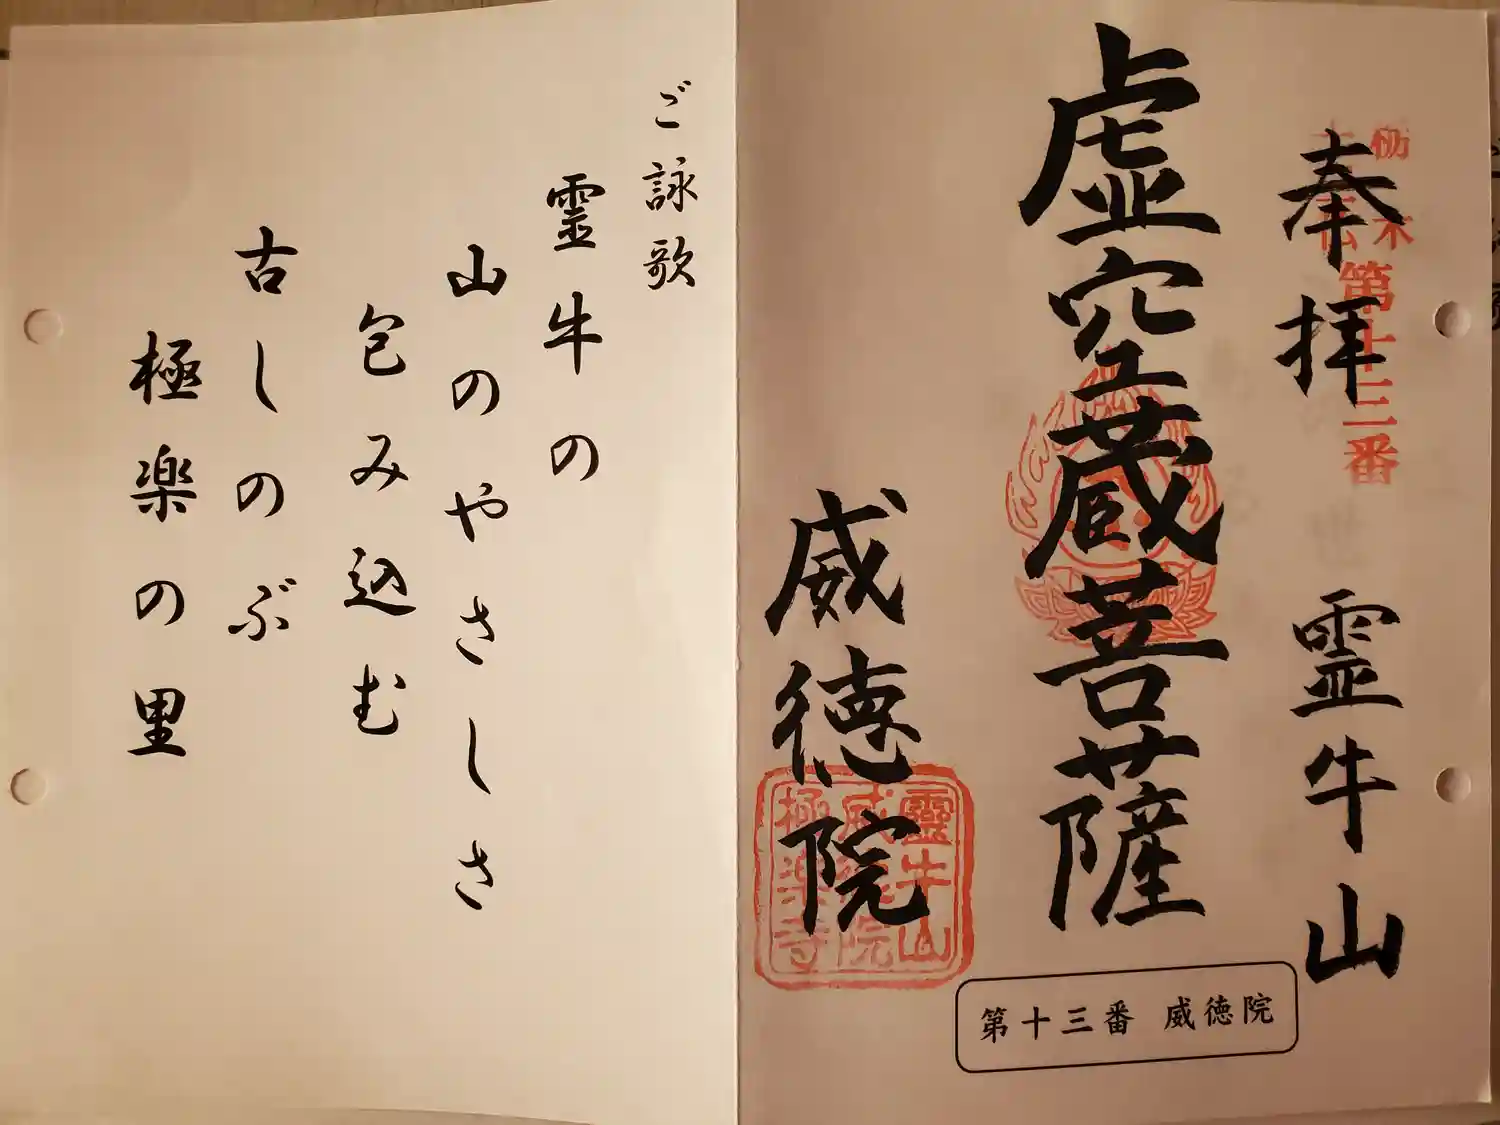 奉拝 霊牛山
栃木
十三仏
第十三番
虚空蔵菩薩
威徳院
靈牛山
威徳院
極楽寺
第十三番 威徳院
ご詠歌
霊牛の
山のやさしさ
包み込む
古しのぶ
極楽の里